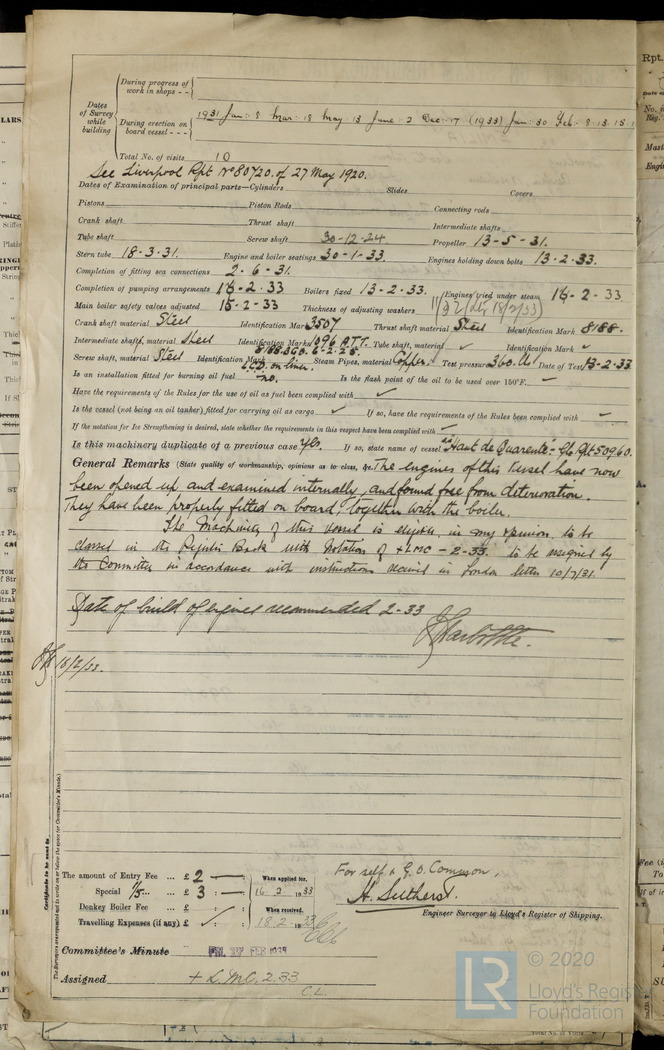 During progress of
work in shops - -
Dates
of Survey
while
building
During erection on
board vessel - - -
1931 Jan: 8 Mar: 18 May 13 June 2 Dec 17 (1933) Jan: 30 Feb: 8. 13. 15.
Total No. of visits 10
See Liverpool Rpt No 80720. of 27 May 1920.
Dates of Examination of principal parts—Cylinders Slides Covers
Pistons Piston Rods Connecting rods
Crank shaft Thrust shaft Intermediate shafts
Tube shaft Screw shaft 30-12-24 Propeller 13-5-31.
Stern tube 18-3-31. Engine and boiler seatings 30-1-33. Engines holding down bolts 13.2.33.
Completion of fitting sea connections 2-6-31.
Completion of pumping arrangements 16-2-33 Boilers fixed 13-2-33. Engines tried under steam 16-2-33
Main boiler safety valves adjusted 15-2-33 Thickness of adjusting washers
Crank shaft material Steel Identification Mark 3507 Thrust shaft material Steel Identification Mark 8188.
Intermediate shafts, material Steel Identification Marks 1096 A.T.T. Tube shaft, material ✓ Identification Mark ✓
Screw shaft, material Steel Identification Mark 8188.360. 6-2-25. Steam Pipes, material Copper. Test pressure 360. lbs Date of Test 13-2-33.
on liner.
Is an installation fitted for burning oil fuel no. Is the flash point of the oil to be used over 150°F. ✓
Have the requirements of the Rules for the use of oil as fuel been complied with ✓
Is the vessel (not being an oil tanker) fitted for carrying oil as cargo ✓ If so, have the requirements of the Rules been complied with ✓
If the notation for Ice Strengthening is desired, state whether the requirements in this respect have been complied with ✓
Is this machinery duplicate of a previous case Yes. If so, state name of vessel "Haut de Quarente" - Rpt 50960.
General Remarks (State quality of workmanship, opinions as to class, &c. The engines of this Vessel have now
been opened up, and examined internally, and found free from deterioration.
They have been properly fitted on board, together with the boiler.
The Machinery of this vessel is eligible, in my opinion, to be
classed in the Register Book with Notation of +LMC - 2-33. to be assigned by
the Committee in accordance with instructions received in London letter 10/7/31.
Date of build of engines recommended 2-33
18/2/33.
Certificate to be sent to
The amount of Entry Fee ... £ 2 — :
Special 1/5 ... ... £ 3 : — :
Donkey Boiler Fee ... £ : :
Travelling Expenses (if any) £ ✓ :
When applied for,
16.2.1933
When received,
18.2.1933
For self & G. O. Common,
Engineer Surveyor to Lloyd's Register of Shipping.
Committee's Minute
FRI. 17 FEB 1933
Assigned + L.M.C. 2.33
C.L.
© 2020
LR
Lloyd's Register
Foundation